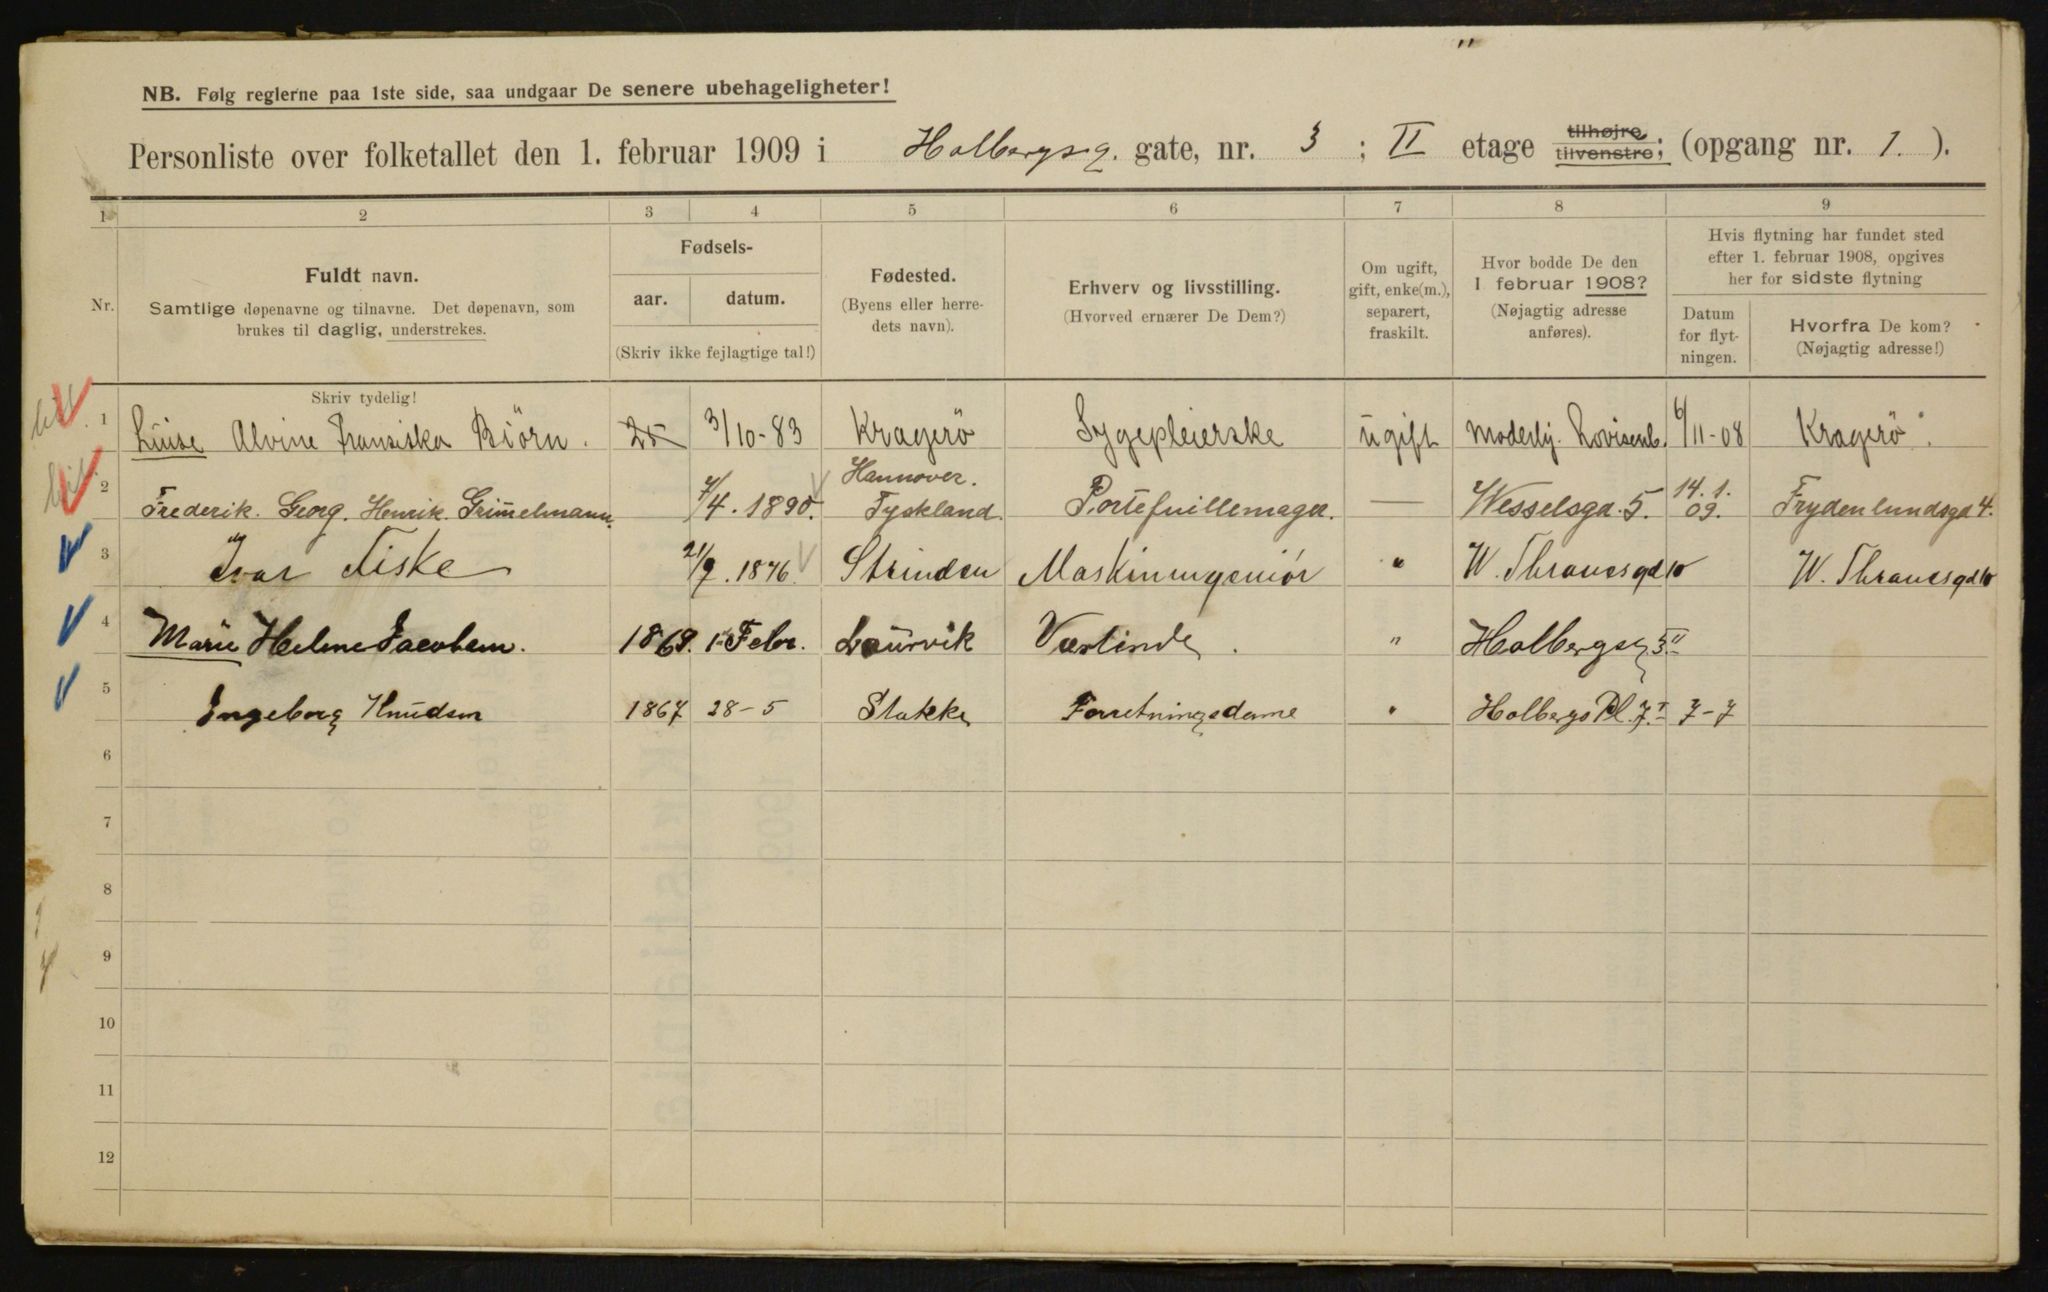 "
NB. Følg reglerne paa 1ste side, saa undgaar De senere ubehageligheter!
Personliste over folketallet den 1. februar 1909 i Holbergsg. gate, nr. 3 ; II etage tilhøjre tilvenstre; (opgang nr. 1. ).
1 2 3 4 5 6 7 8 9
Nr.
Fuldt navn.
Samtlige døpenavne og tilnavne. Det døpenavn, som
brukes til daglig, understrekes.
Fødsels-
aar. datum.
(Skriv ikke fejlagtige tal!)
Fødested.
(Byens eller herre-
dets navn).
Erhverv og livsstilling.
(Hvorved ernærer De Dem?)
Om ugift,
gift, enke(m.),
separert,
fraskilt.
Hvor bodde De den
1 februar 1908?
(Nøjagtig adresse
anføres).
Hvis flytning har fundet sted
efter 1. februar 1908, opgives
her for sidste flytning
Datum
for flyt-
ningen.
Hvorfra De kom?
(Nøjagtig adresse!)
Skriv tydelig!
1 Luise Alvine Fransiska Biörn. 25 3/10-83 Kragerö Sygepleierske ugift Moderhj. Lovisenb. 6/11-08 Kragerö.
2 Frederik. Georg. Henrik. Grimmelmann. 7/4. 1890. Hannover. Tyskland. Portefuillemager. — Wesselsgd. 5. 14. 1. 09. Frydenlundsgd 4.
3 Ivar Fiske 21/9. 1876. Strinden Maskiningeniör " W. Thranesgd 10 W. Thranesgd 10
4 Marie Helene Jacobsen. 1868. 1 Febr. Laurvik Værtinde. " Holbergsg 3 II
5 Ingeborg Knudsen 1867 28-5 Stokke Forretningsdame " Holbergs Pl. 7. I 7-7
6
7
8
9
10
11
12